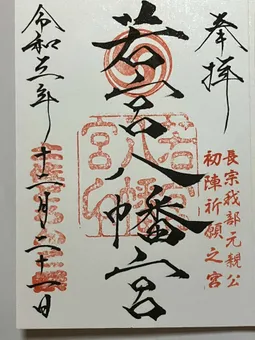 奉拝
長宗我部元親公
初陣祈願之宮
若宮八幡宮
若宮八幡宮
令和三年十二月二十一日